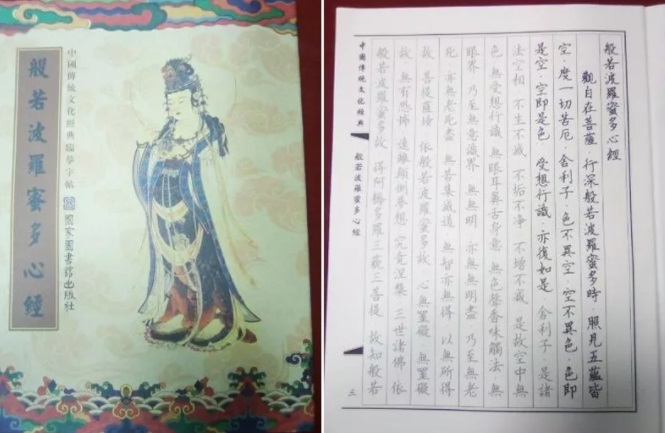 般若波羅蜜多心經
中國傳統文化經典臨摹字帖
國家圖書館出版社
般若波羅蜜多心經
觀自在菩薩·行深般若波羅蜜多時·照見五蘊皆
空·度一切苦厄·舍利子·色不異空·空不異色·色即
是空·空即是色·受想行識·亦復如是·舍利子·是諸
法空相·不生不滅·不垢不淨·不增不減·是故空中無
色·無受想行識·無眼耳鼻舌身意·無色聲香味觸法·無
眼界·乃至無意識界·無無明·亦無無明盡·乃至無老
死·亦無老死盡·無苦集滅道·無智亦無得·以無所得
故·菩提薩埵·依般若波羅蜜多故·心無罣礙·無罣礙
故·無有恐怖·遠離顛倒夢想·究竟涅槃·三世諸佛·依
般若波羅蜜多故·得阿耨多羅三藐三菩提·故知般若
中國傳統文化經典
般若波羅蜜多心經
三